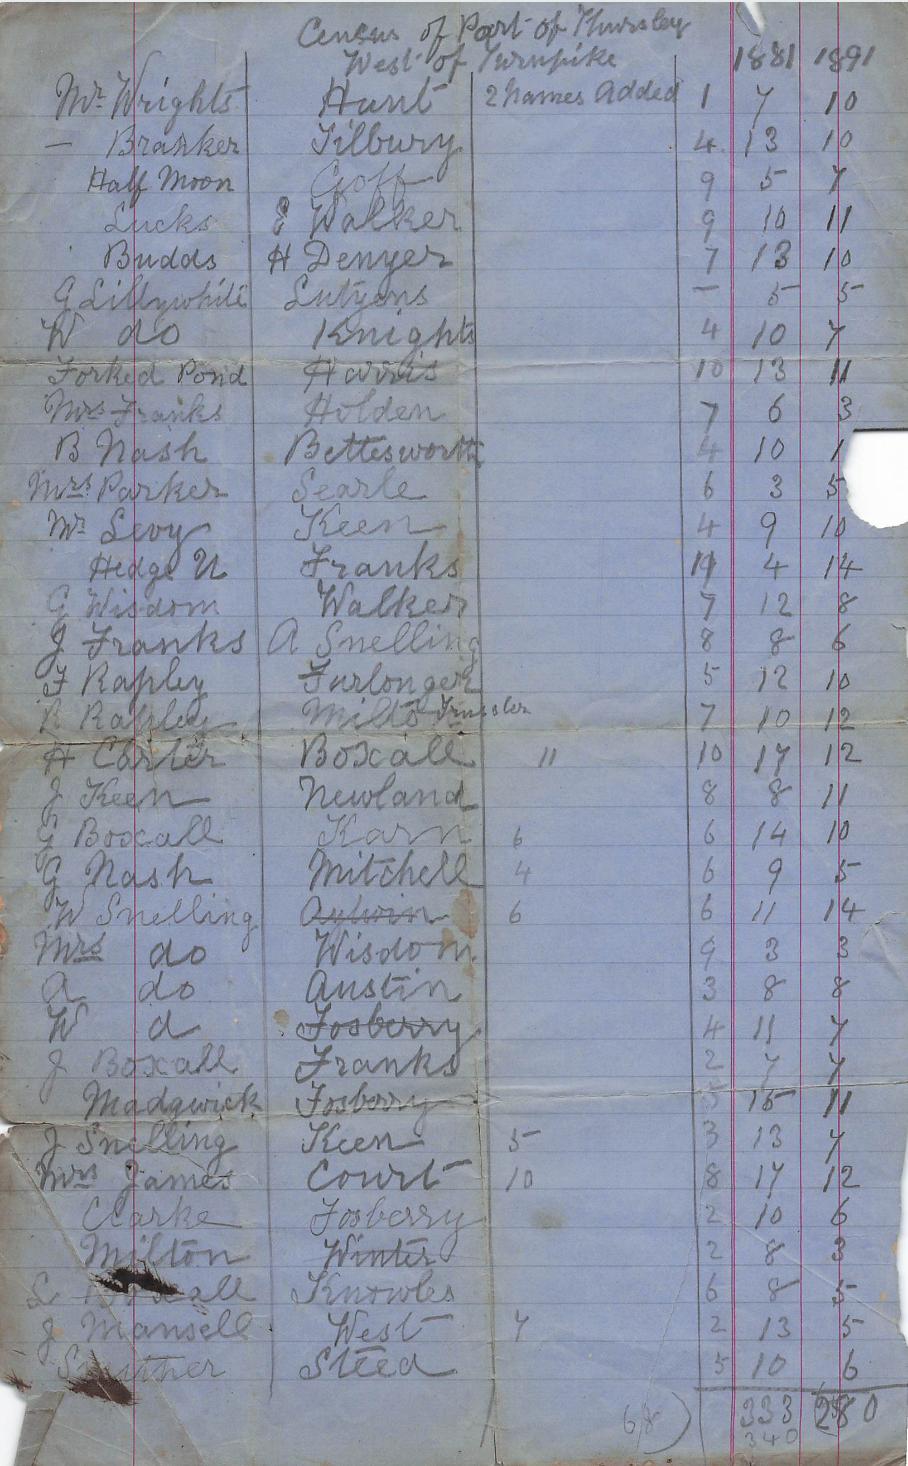 Census of Part of Thursley
West of Turnpike 1881 1891
Mr Wrights Hunt 2 names Added 1 7 10
— Branker Tilbury 4 13 10
Half Moon Goff 9 5 7
Lucks E Walker 9 10 11
Budds H Denyer 7 13 10
G Lillywhite Lutyens — 5 5
W do Knights 4 10 7
Forked Pond Harris 10 13 11
Mrs Franks Holden 7 6 3
B Nash Bettesworth 4 10 1
Mrs Parker Searle 6 3 5
Mr Levy Keen 4 9 10
Hedge N Franks 11 4 14
G Wisdom Walker 7 12 8
J Franks A Snelling 8 8 6
F Rapley Furlonger 5 12 10
R Rapley Milto 7 10 12
H Carter Boxall 11 10 17 12
J Keen Newland 8 8 11
G Boxall Karn 6 6 14 10
G Nash Mitchell 4 6 9 5
W Snelling Aylwin 6 6 11 14
Mrs do Wisdom 9 3 3
A do Austin 3 8 8
W d Fosberry 4 11 7
J Boxall Franks 2 7 7
Madgwick Fosberry 5 15 11
J Snelling Keen 5 3 13 7
Mrs James Court 10 8 17 12
Clarke Fosberry 2 10 6
Milton Winter 2 8 3
Knowles 6 8 5
J Mansell West 7 2 13 5
Steed 5 10 6
68) 333 280
340